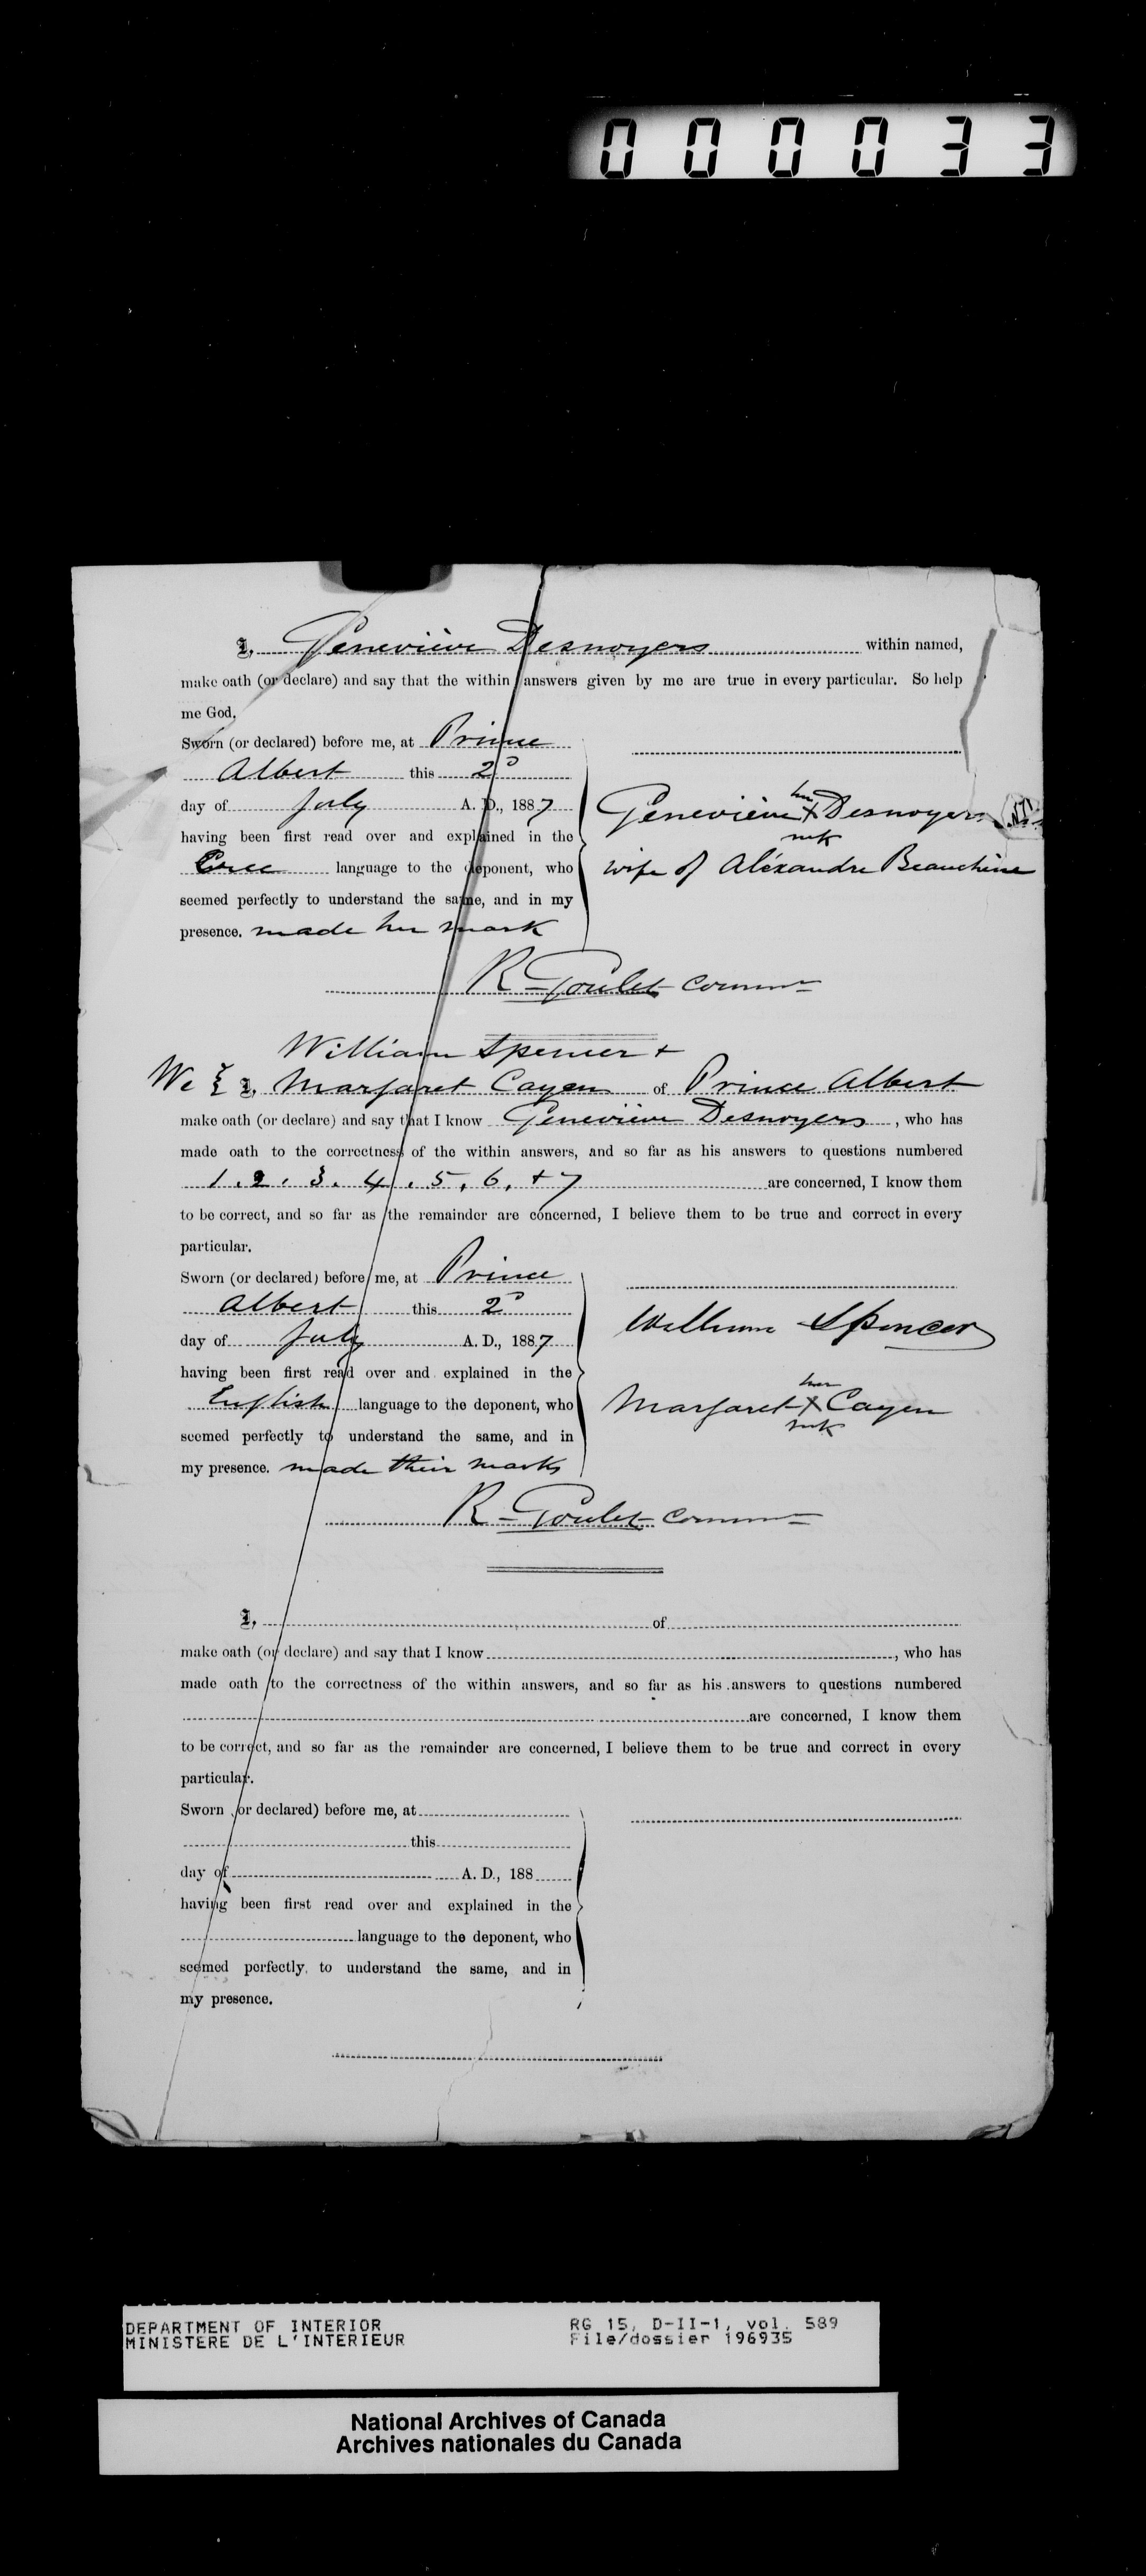 000033
I, Geneviève Desnoyers within named,
make oath (or declare) and say that the within answers given by me are true in every particular. So help
me God.
Sworn (or declared) before me, at Prince
Albert this 2d
day of July A. D., 1887
having been first read over and explained in the
Cree language to the deponent, who
seemed perfectly to understand the same, and in my
presence. made her mark
Geneviève her X mk Desnoyers
wife of Aléxandre Beauchêne
R Goulet Commr
William Spencer +
We { I, Margaret Cayen of Prince Albert
make oath (or declare) and say that I know Geneviève Desnoyers, who has
made oath to the correctness of the within answers, and so far as his answers to questions numbered
1. 2. 3. 4. 5. 6. + 7 are concerned, I know them
to be correct, and so far as the remainder are concerned, I believe them to be true and correct in every
particular.
Sworn (or declared) before me, at Prince
Albert this 2d
day of July A. D., 1887
having been first read over and explained in the
English language to the deponent, who
seemed perfectly to understand the same, and in
my presence. made their marks
William Spencer
Margaret her X mk Cayen
R Goulet Commr
I, of
make oath (or declare) and say that I know , who has
made oath to the correctness of the within answers, and so far as his answers to questions numbered
are concerned, I know them
to be correct, and so far as the remainder are concerned, I believe them to be true and correct in every
particular.
Sworn (or declared) before me, at
this
day of A. D., 188
having been first read over and explained in the
language to the deponent, who
seemed perfectly to understand the same, and in
my presence.
DEPARTMENT OF INTERIOR RG 15, D-II-1, vol. 589
MINISTERE DE L'INTERIEUR File/dossier 196935
National Archives of Canada
Archives nationales du Canada